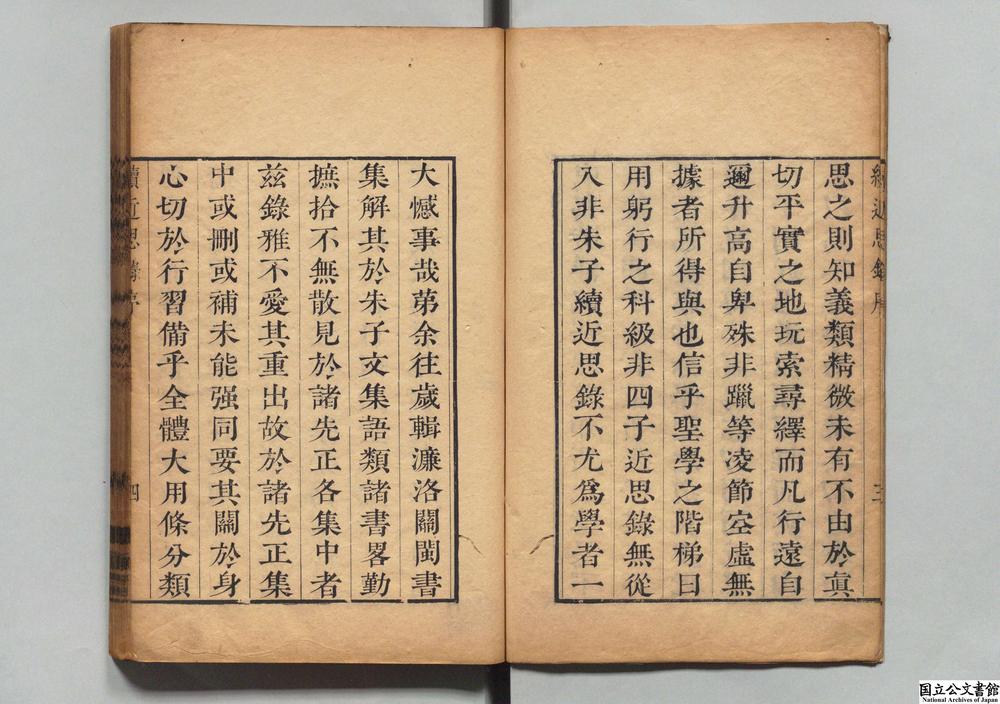 續近思錄序
三
思之則知義類精微未有不由於真
切平實之地玩索尋繹而凡行遠自
邇升高自卑殊非躐等凌節空虛無
據者所得與也信乎聖學之階梯日
用躬行之科級非四子近思錄無從
入非朱子續近思錄不尤爲學者一
大憾事哉苐余往歲輯濂洛關閩書
集解其於朱子文集語類諸書畧勤
摭拾不無散見於諸先正各集中者
茲錄雅不愛其重出故於諸先正集
中或刪或補未能强同要其關於身
心切於行習備乎全體大用條分類
續近思錄序
四
国立公文書館
National Archives of Japan